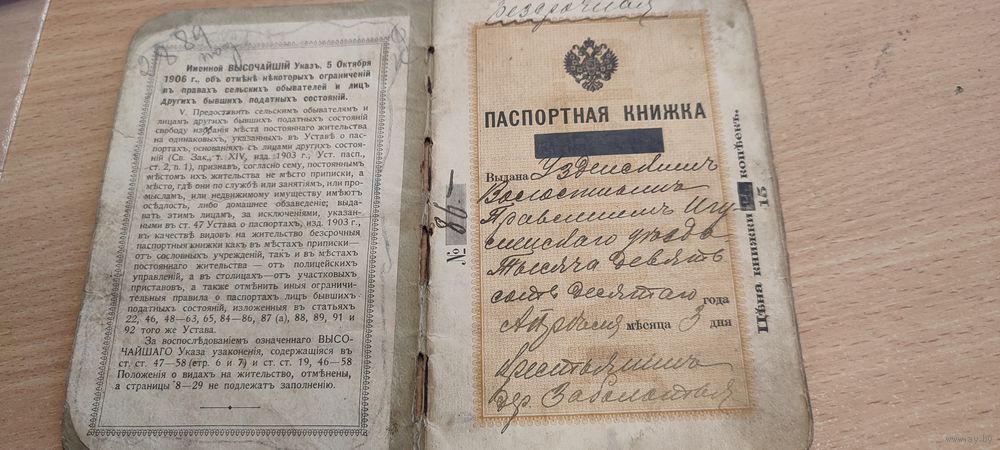 Именной ВЫСОЧАЙШІЙ Указъ. 5 Октября
1906 г., объ отмѣнѣ нѣкоторыхъ ограниченій
въ правахъ сельскихъ обывателей и лицъ
другихъ бывшихъ податныхъ состояній.
V. Предоставить сельскимъ обывателямъ и
лицамъ другихъ бывшихъ податныхъ состояній
свободу избранія мѣста постояннаго жительства
на одинаковыхъ, указанныхъ въ Уставѣ о пас-
портахъ, основаніяхъ съ лицами другихъ состоя-
ній (Св. Зак., т. XIV, изд. 1903 г., Уст. пасп.,
ст. 2, п. 1), признавъ, согласно сему, постояннымъ
мѣстомъ ихъ жительства не мѣсто приписки, а
мѣсто, гдѣ они по службѣ или занятіямъ, или про-
мысламъ, или недвижимому имуществу имѣютъ
осѣдлость, либо домашнее обзаведеніе; выда-
вать этимъ лицамъ, за исключеніями, указан-
ными въ ст. 47 Устава о паспортахъ, изд. 1903 г.,
въ качествѣ видовъ на жительство безсрочныя
паспортныя книжки какъ въ мѣстахъ приписки—
отъ сословныхъ учрежденій, такъ и въ мѣстахъ
постояннаго жительства — отъ полицейскихъ
управленій, а въ столицахъ—отъ участковыхъ
приставовъ, а также отмѣнить иныя ограничи-
тельныя правила о паспортахъ лицъ бывшихъ
податныхъ состояній, изложенныя въ статьяхъ
22, 46, 48—63, 65, 84—86, 87 (а), 88, 89, 91 и
92 того же Устава.
За воспослѣдованіемъ означеннаго ВЫСО-
ЧАЙШАГО Указа узаконенія, содержащіяся въ
ст. ст. 47—58 (стр. 6 и 7) и ст. ст. 19, 46—58
Положенія о видахъ на жительство, отмѣнены,
а страницы 8—29 не подлежатъ заполненію.
Безсрочная
ПАСПОРТНАЯ КНИЖКА
№ 86.—
Выдана Узденскимъ
Волостнымъ
Правленіемъ Игу-
менскаго уѣзда
Тысяча девять
сотъ десятаго года
Апрѣля мѣсяца 3 дня
Крестьянинъ
дер. Заболотная
Цѣна книжки 15 копѣекъ.
www.ay.by